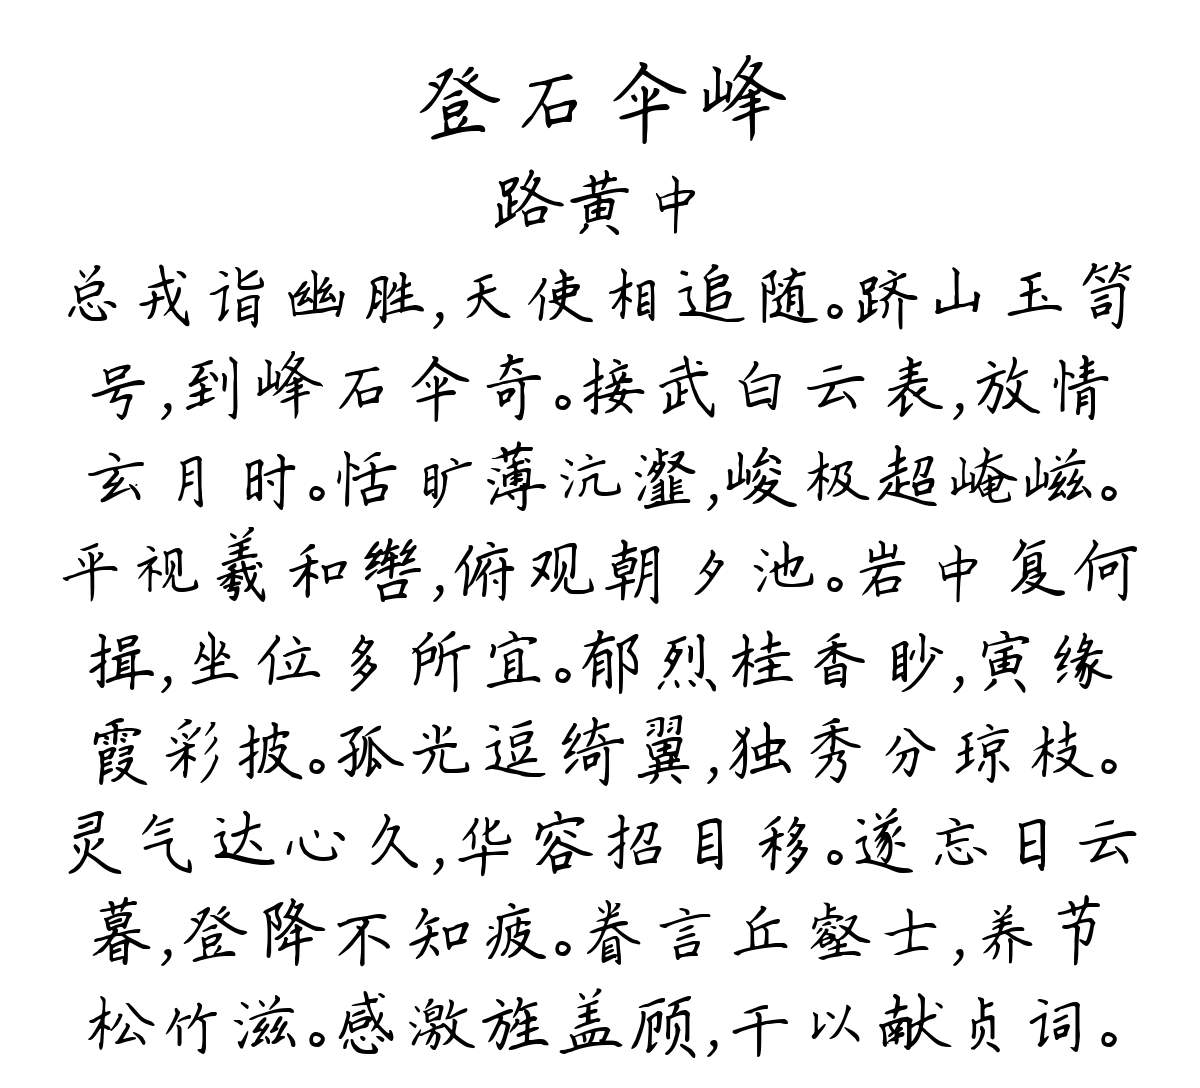 登石伞峰
路黄中
总戎诣幽胜,天使相追随。跻山玉笥
号,到峰石伞奇。接武白云表,放情
玄月时。恬旷薄沆瀣,峻极超崦嵫。
平视羲和辔,俯观朝夕池。岩中复何
揖,坐位多所宜。郁烈桂香眇,寅缘
霞彩披。孤光逗绮翼,独秀分琼枝。
灵气达心久,华容招目移。遂忘日云
暮,登降不知疲。眷言丘壑士,养节
松竹滋。感激旌盖顾,干以献贞词。